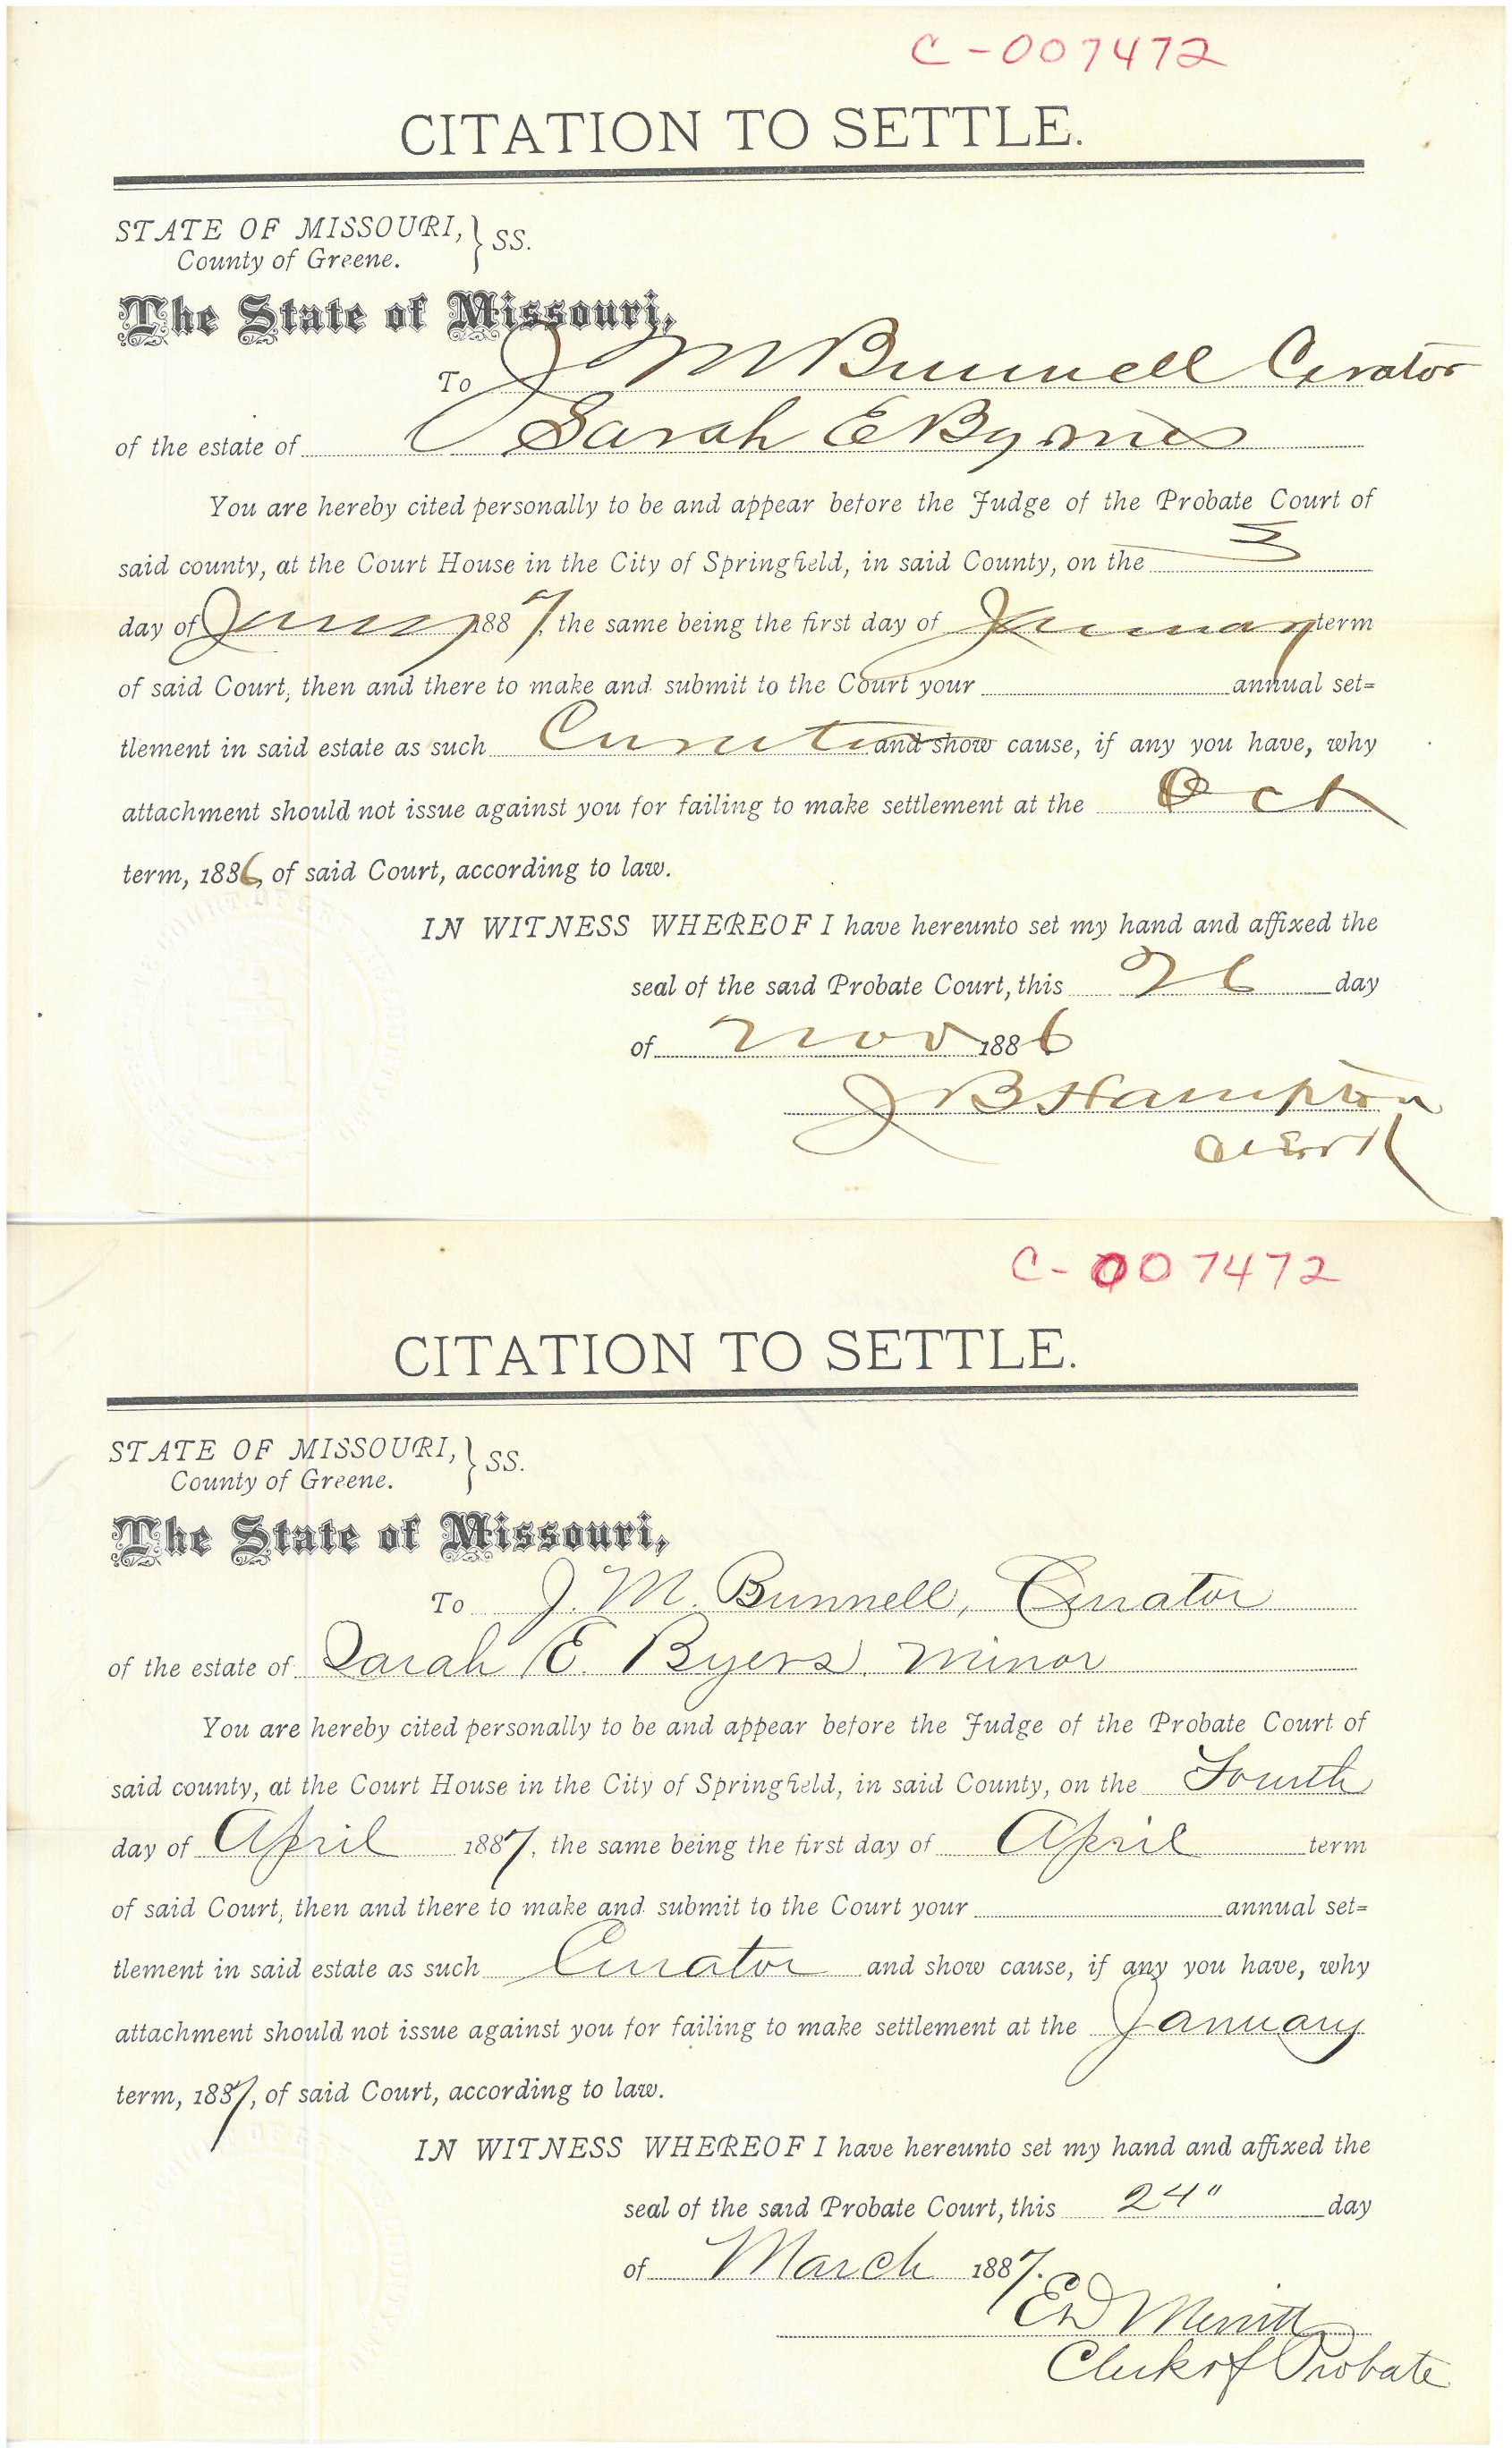 C-007472
CITATION TO SETTLE.
STATE OF MISSOURI, } SS.
County of Greene.
The State of Missouri,
To J M Bunnell Curator
of the estate of Sarah E
You are hereby cited personally to be and appear before the Judge of the Probate Court of
said county, at the Court House in the City of Springfield, in said County, on the 3
day of 1887, the same being the first day of January term
of said Court, then and there to make and submit to the Court your annual set=
tlement in said estate as such Curator and show cause, if any you have, why
attachment should not issue against you for failing to make settlement at the Oct
term, 1886, of said Court, according to law.
IN WITNESS WHEREOF I have hereunto set my hand and affixed the
seal of the said Probate Court, this 26 day
of Nov 1886
J B Hampton
Clerk
C-007472
CITATION TO SETTLE.
STATE OF MISSOURI, } SS.
County of Greene.
The State of Missouri,
To J. M. Bunnell, Curator
of the estate of Sarah E. Byers, minor
You are hereby cited personally to be and appear before the Judge of the Probate Court of
said county, at the Court House in the City of Springfield, in said County, on the Fourth
day of April 1887, the same being the first day of April term
of said Court, then and there to make and submit to the Court your annual set=
tlement in said estate as such Curator and show cause, if any you have, why
attachment should not issue against you for failing to make settlement at the January
term, 1887, of said Court, according to law.
IN WITNESS WHEREOF I have hereunto set my hand and affixed the
seal of the said Probate Court, this 24" day
of March 1887.
ED Merritt
Clerk of Probate